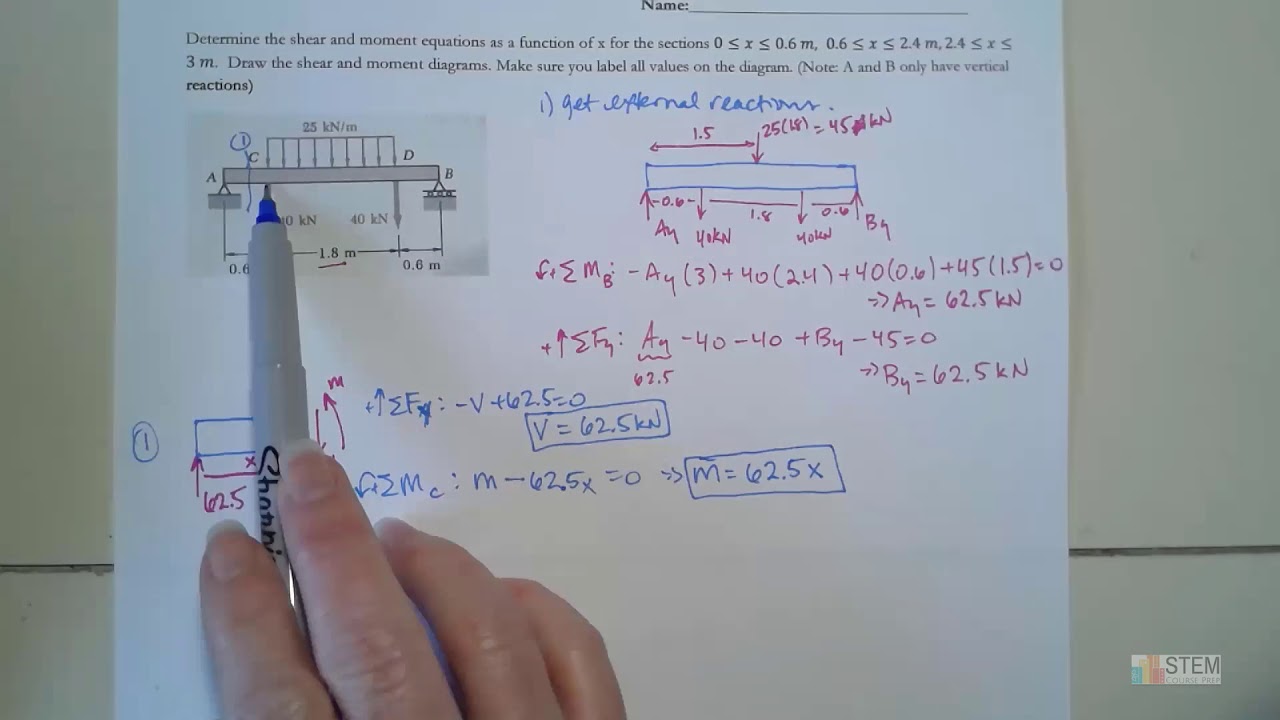 Name:
Determine the shear and moment equations as a function of x for the sections 0 ≤ x ≤ 0.6 m, 0.6 ≤ x ≤ 2.4 m, 2.4 ≤ x ≤
3 m. Draw the shear and moment diagrams. Make sure you label all values on the diagram. (Note: A and B only have vertical
reactions)
1) get external reactions.
25 kN/m
①
C
D
A
B
0 kN
40 kN
1.8 m
0.6
0.6 m
1.5
25(1.8) = 45 kN
0.6
1.8
0.6
Ay
40kN
40kN
By
+ΣMB: -Ay(3)+40(2.4)+40(0.6)+45(1.5)=0
⇒ Ay = 62.5 kN
+↑ΣFy: Ay -40 -40 +By -45=0
62.5
⇒ By = 62.5 kN
①
x
62.5
M
+↑ΣFy: -V+62.5=0
V = 62.5kN
+ΣMc: M -62.5x =0 ⇒ M = 62.5x
STEM
COURSE PREP